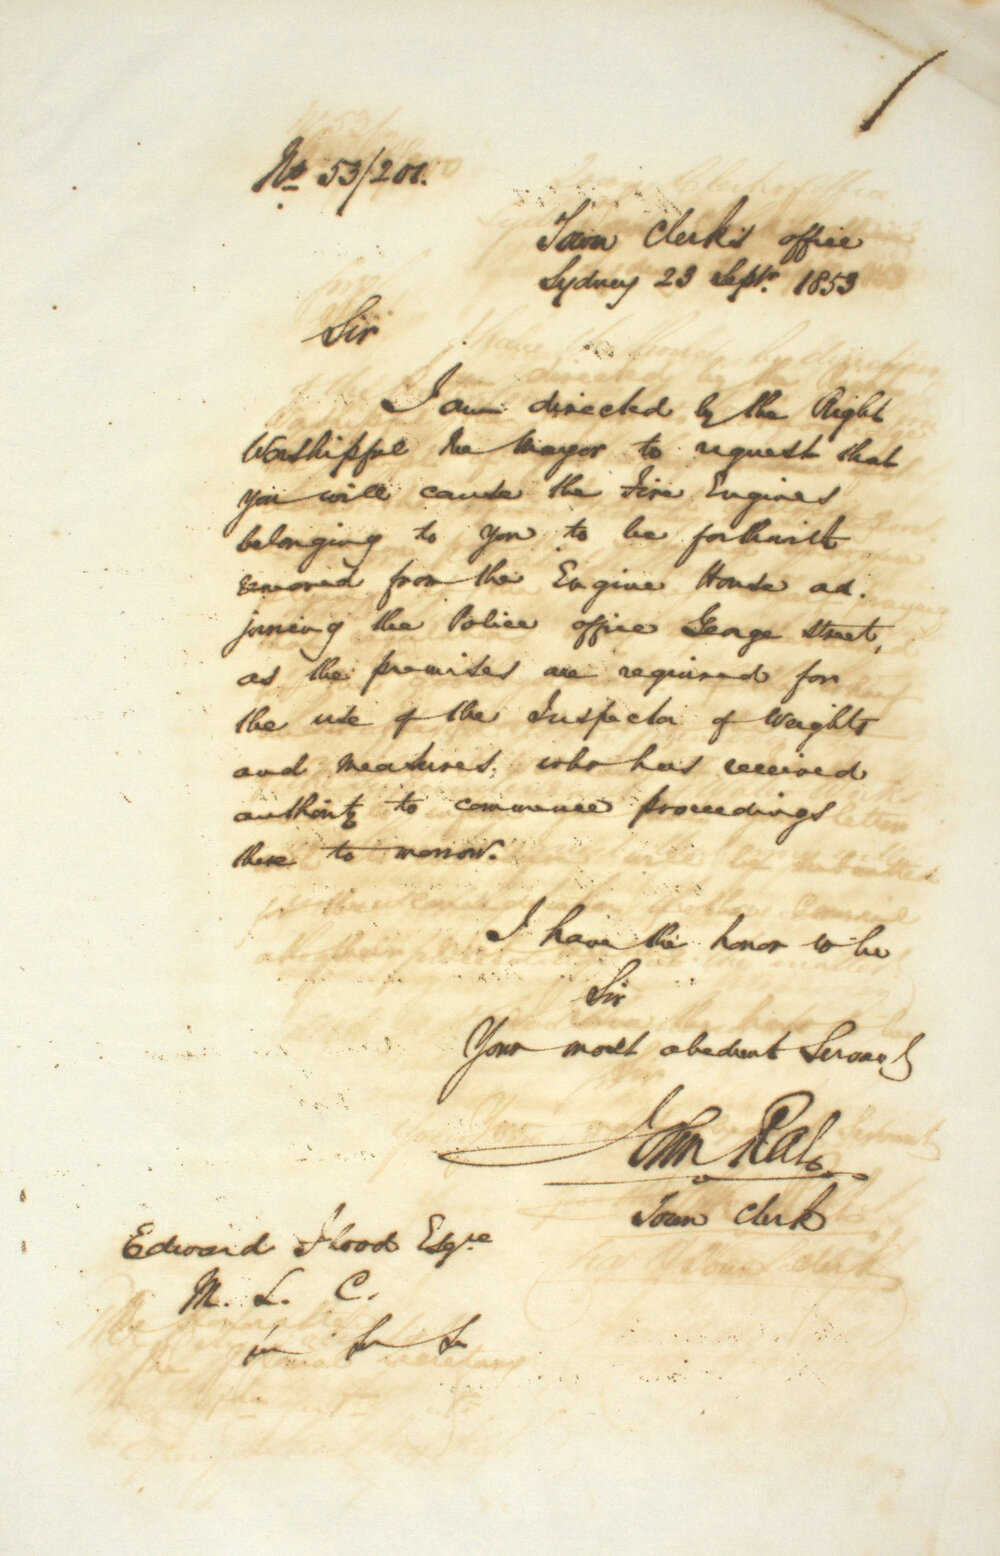 No 53/201.
Town Clerk's office
Sydney 23 Septr. 1853
Sir
I am directed by the Right
Worshipful the Mayor to request that
you will cause the Fire Engines
belonging to you to be forthwith
removed from the Engine House ad-
joining the Police office George Street,
as the premises are required for
the use of the Inspector of Weights
and Measures, who has received
authority to commence proceedings
there to morrow.
I have the honor to be
Sir
Your most obedient Servant
John Rae
Town Clerk
Edward Flood Esqre
M. L. C.